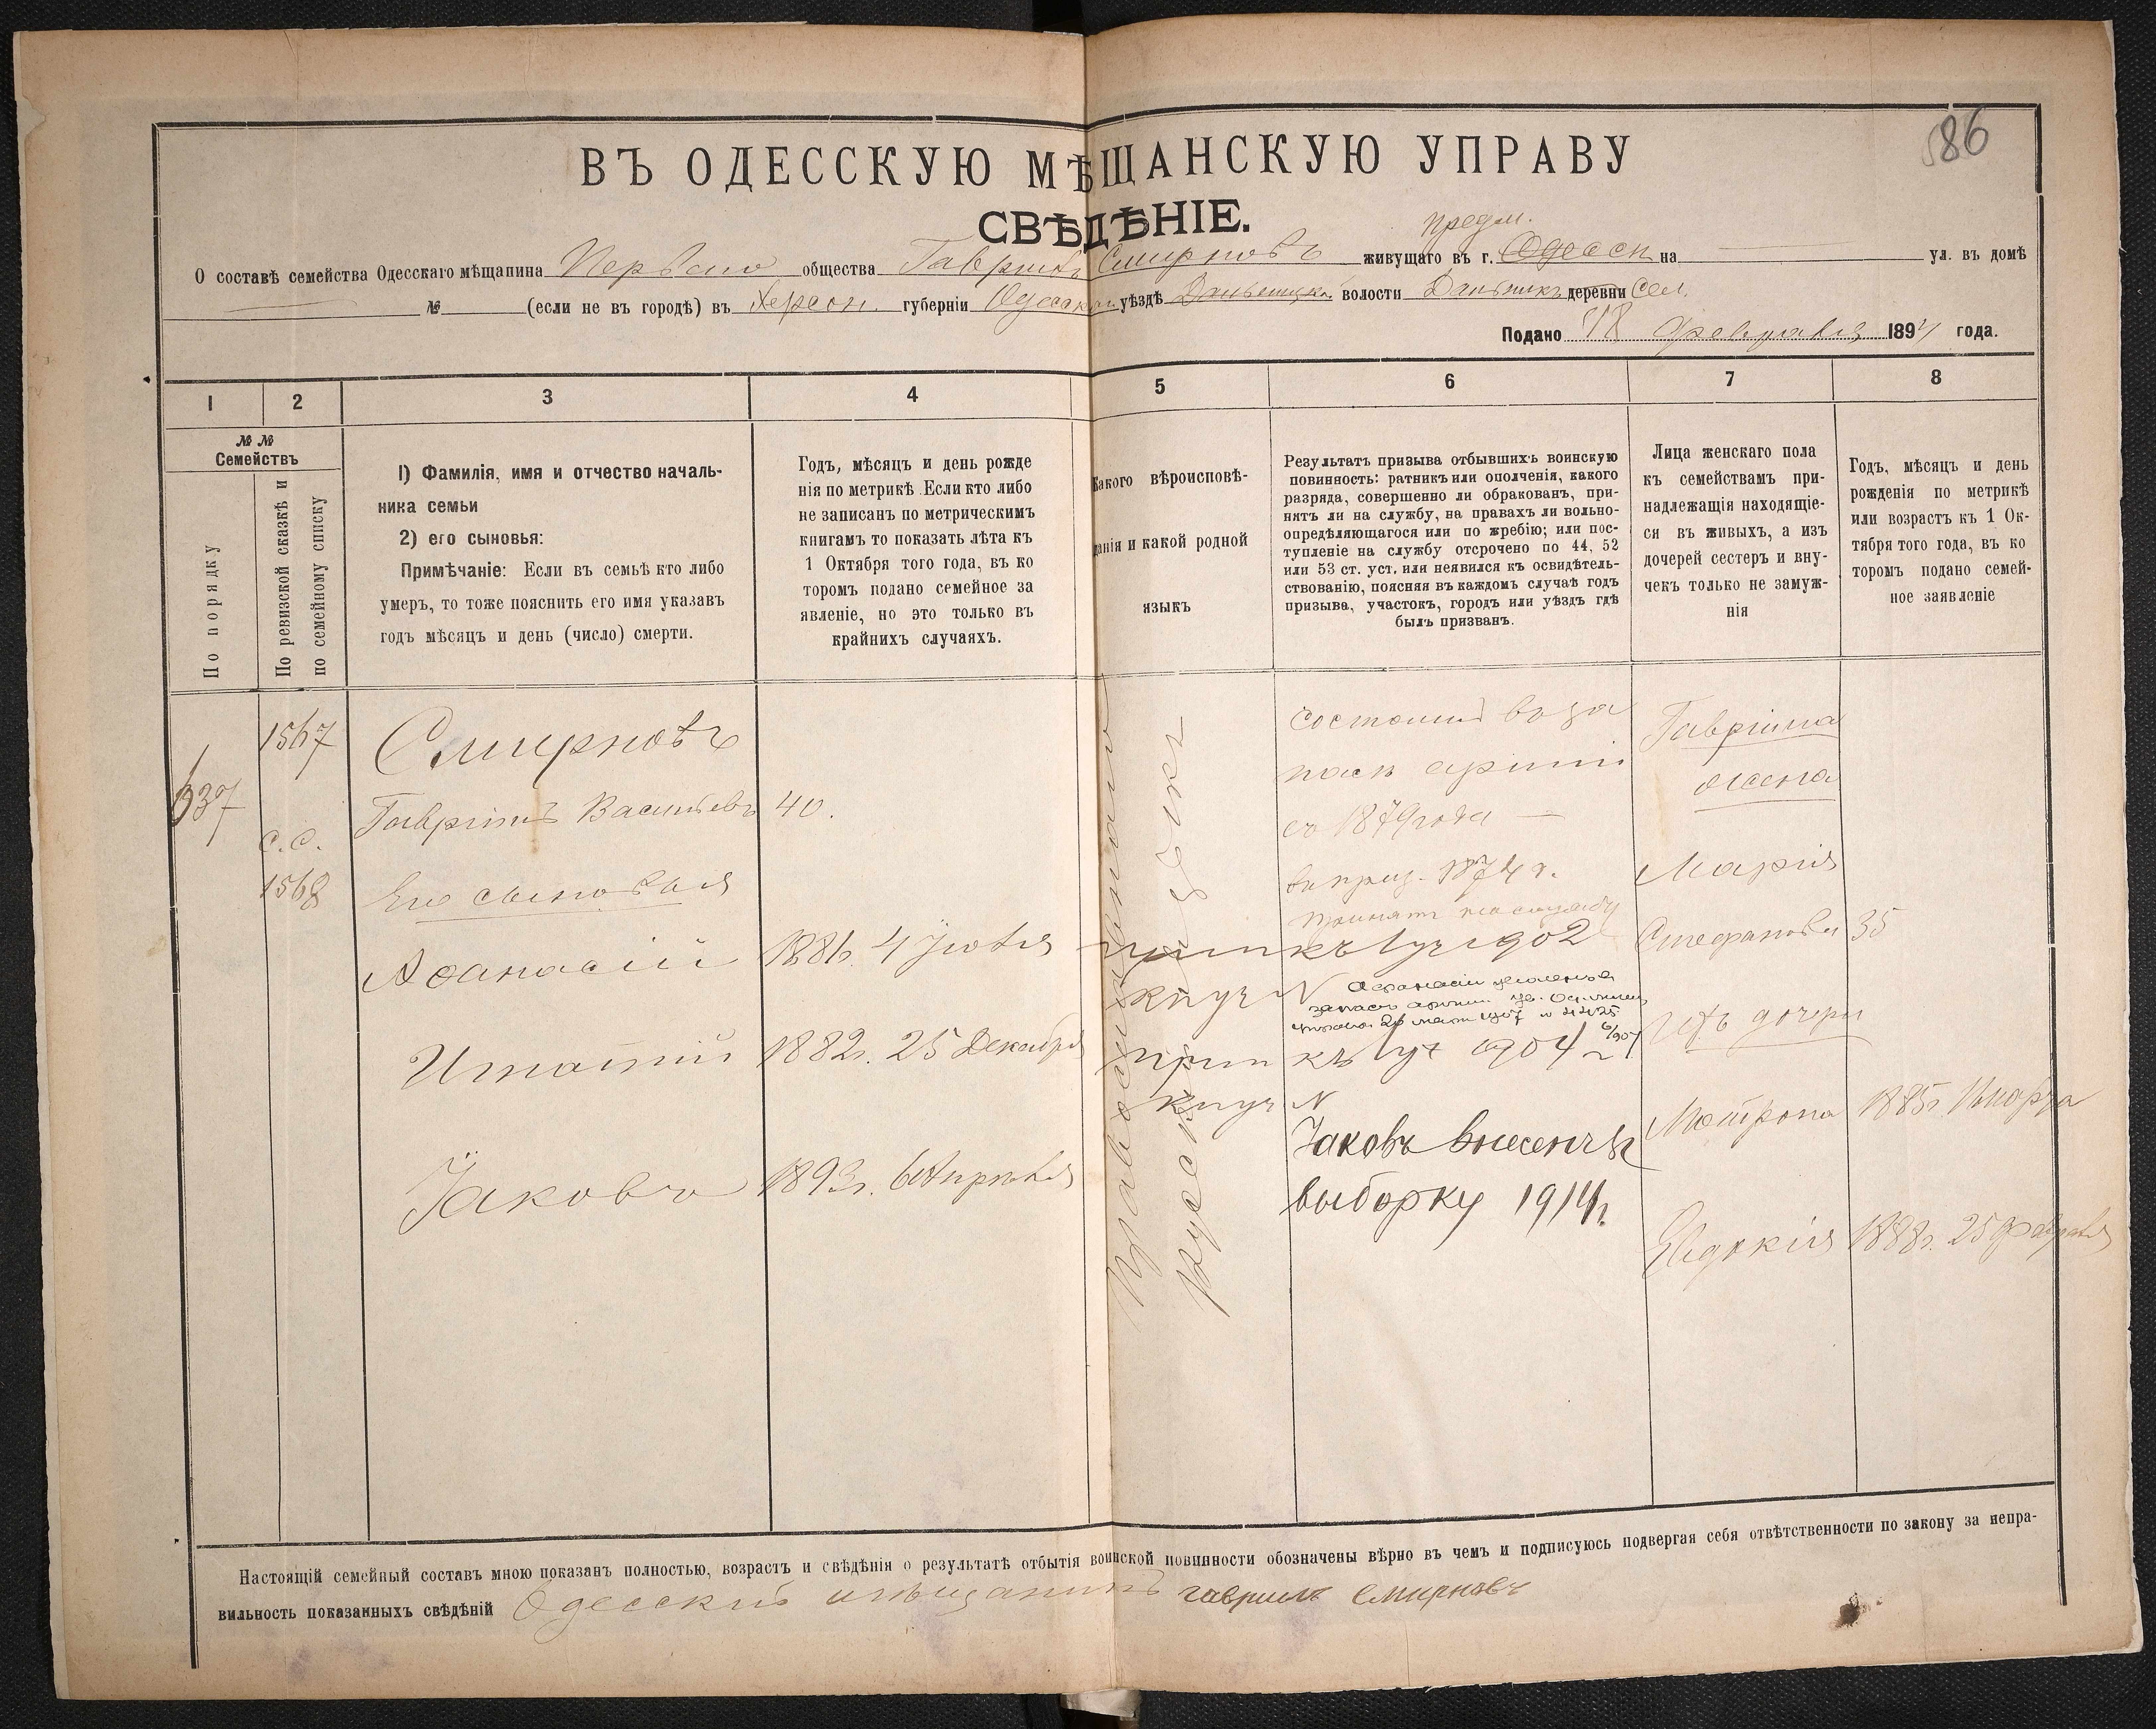 86
ВЪ ОДЕССКУЮ МѢЩАНСКУЮ УПРАВУ
СВѢДѢНІЕ.
предм.
О составѣ семейства Одесскаго мѣщанина Перваго общества Гавріилъ Смирновъ живущаго въ г. Одессѣ на ул. въ домѣ
№ (если не въ городѣ) въ Херсон. губерніи Одесскомъ уѣздѣ волости Дальникъ деревни Сел.
Подано 18 Февраля 1894 года.
1 2 3 4 5 6 7 8
№ № Семействъ
По порядку
По ревизской сказкѣ и
по семейному списку
1) Фамилія, имя и отчество началь-
ника семьи
2) его сыновья:
Примѣчаніе: Если въ семьѣ кто либо
умеръ, то тоже пояснить его имя указавъ
годъ мѣсяцъ и день (число) смерти.
Годъ, мѣсяцъ и день рожде
нія по метрикѣ Если кто либо
не записанъ по метрическимъ
книгамъ то показать лѣта къ
1 Октября того года, въ ко
торомъ подано семейное за
явленіе, но это только въ
крайнихъ случаяхъ.
Какого вѣроисповѣ-
данія и какой родной
языкъ
Результатъ призыва отбывшихъ воинскую
повинность: ратникъ или ополченія, какого
разряда, совершенно ли обракованъ, при-
нятъ ли на службу, на правахъ ли вольно-
опредѣляющагося или по жребію; или пос-
тупленіе на службу отсрочено по 44, 52
или 53 ст. уст. или неявился къ освидѣтель-
ствованію, поясняя въ каждомъ случаѣ годъ
призыва, участокъ, городъ или уѣздъ гдѣ
былъ призванъ.
Лица женскаго пола
къ семействамъ при-
надлежащія находящіе-
ся въ живыхъ, а изъ
дочерей сестеръ и вну-
чекъ только не замуж-
нія
Годъ, мѣсяцъ и день
рожденія по метрикѣ
или возрастъ къ 1 Ок-
тября того года, въ ко
торомъ подано семей-
ное заявленіе
637
1567
с.с.
1568
Смирновъ
Гавріилъ Васильевъ 40.
Его сыновья
Афанасій 1881г. 4 Іюля
Игнатій 1882г. 25 Декабря
Іаковъ 1893г. 6 Апрѣля
Православнаго
Русскій языкъ
Состоитъ въ за
пасѣ арміи
съ 1879 года —
въ приз. 1874 г.
принятъ на службу
прип къ 1 уч 1902
Афанасій уволенъ въ
запасъ арміи
прип къ 1 уч 1904
Іаковъ внесенъ въ
выборку 1914г.
Гавріила
жена
Марія
Стефанова 35
Ихъ дочери
Матрона 1885г. Марта
Евдокія 1888г. 25 Февраля
Настоящій семейный составъ мною показанъ полностью, возрастъ и свѣдѣнія о результатѣ отбытія воинской повинности обозначены вѣрно въ чемъ и подписуюсь подвергая себя отвѣтственности по закону за непра-
вильность показанныхъ свѣдѣній Одесскій мѣщанинъ гаврилъ Смирновъ